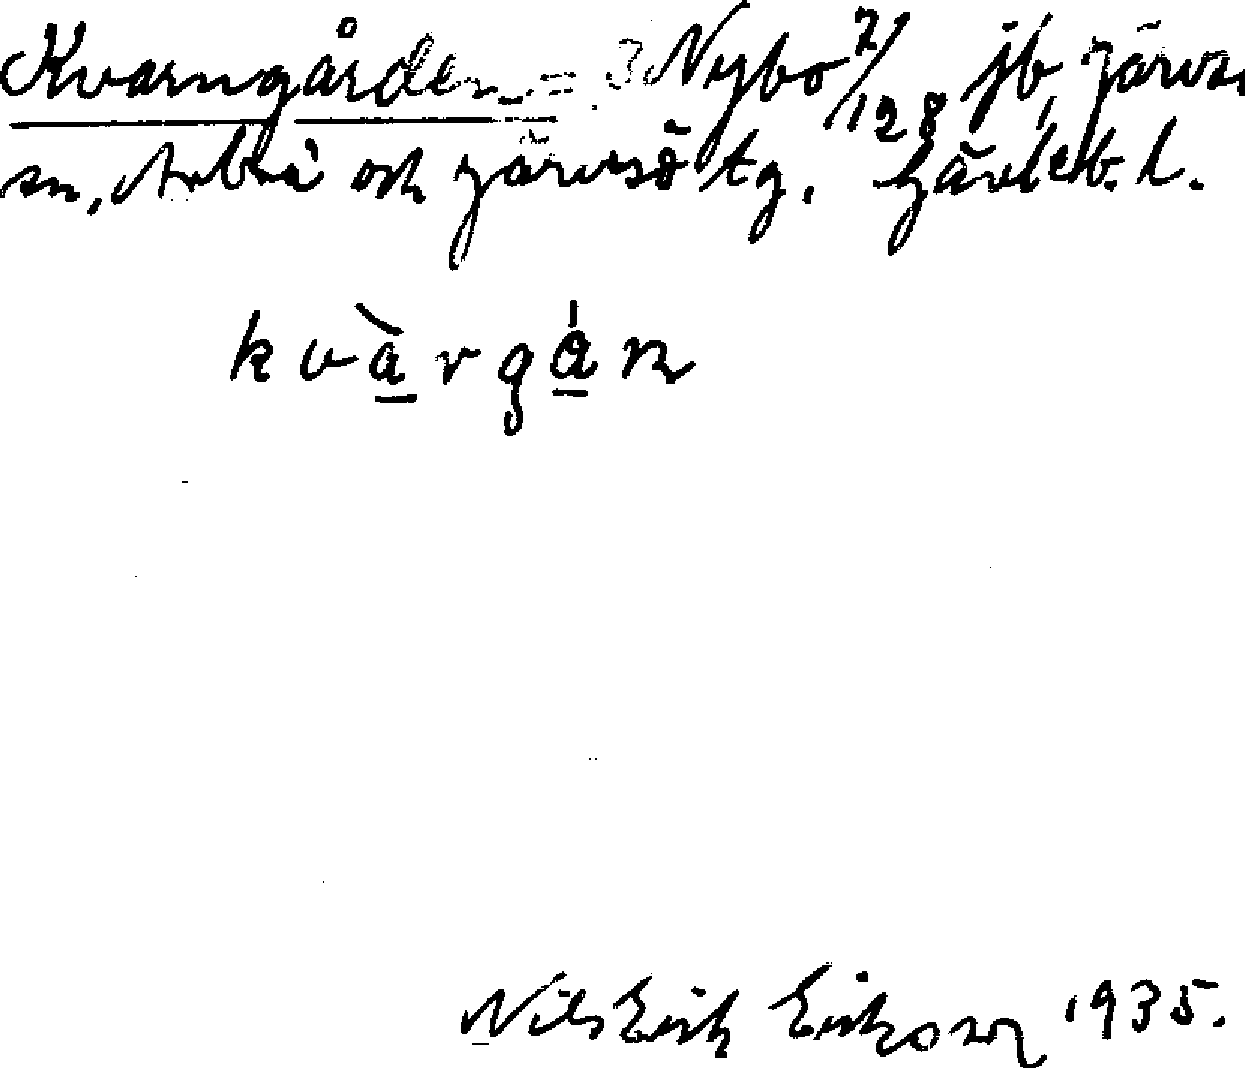 Kvarngården = 3 Nybo 2/128 jb, Järvsö
sn, Arbrå och Järvsö tg. Gävleb. l.
kvàrgán
Nils Erik Eriksson 1935.